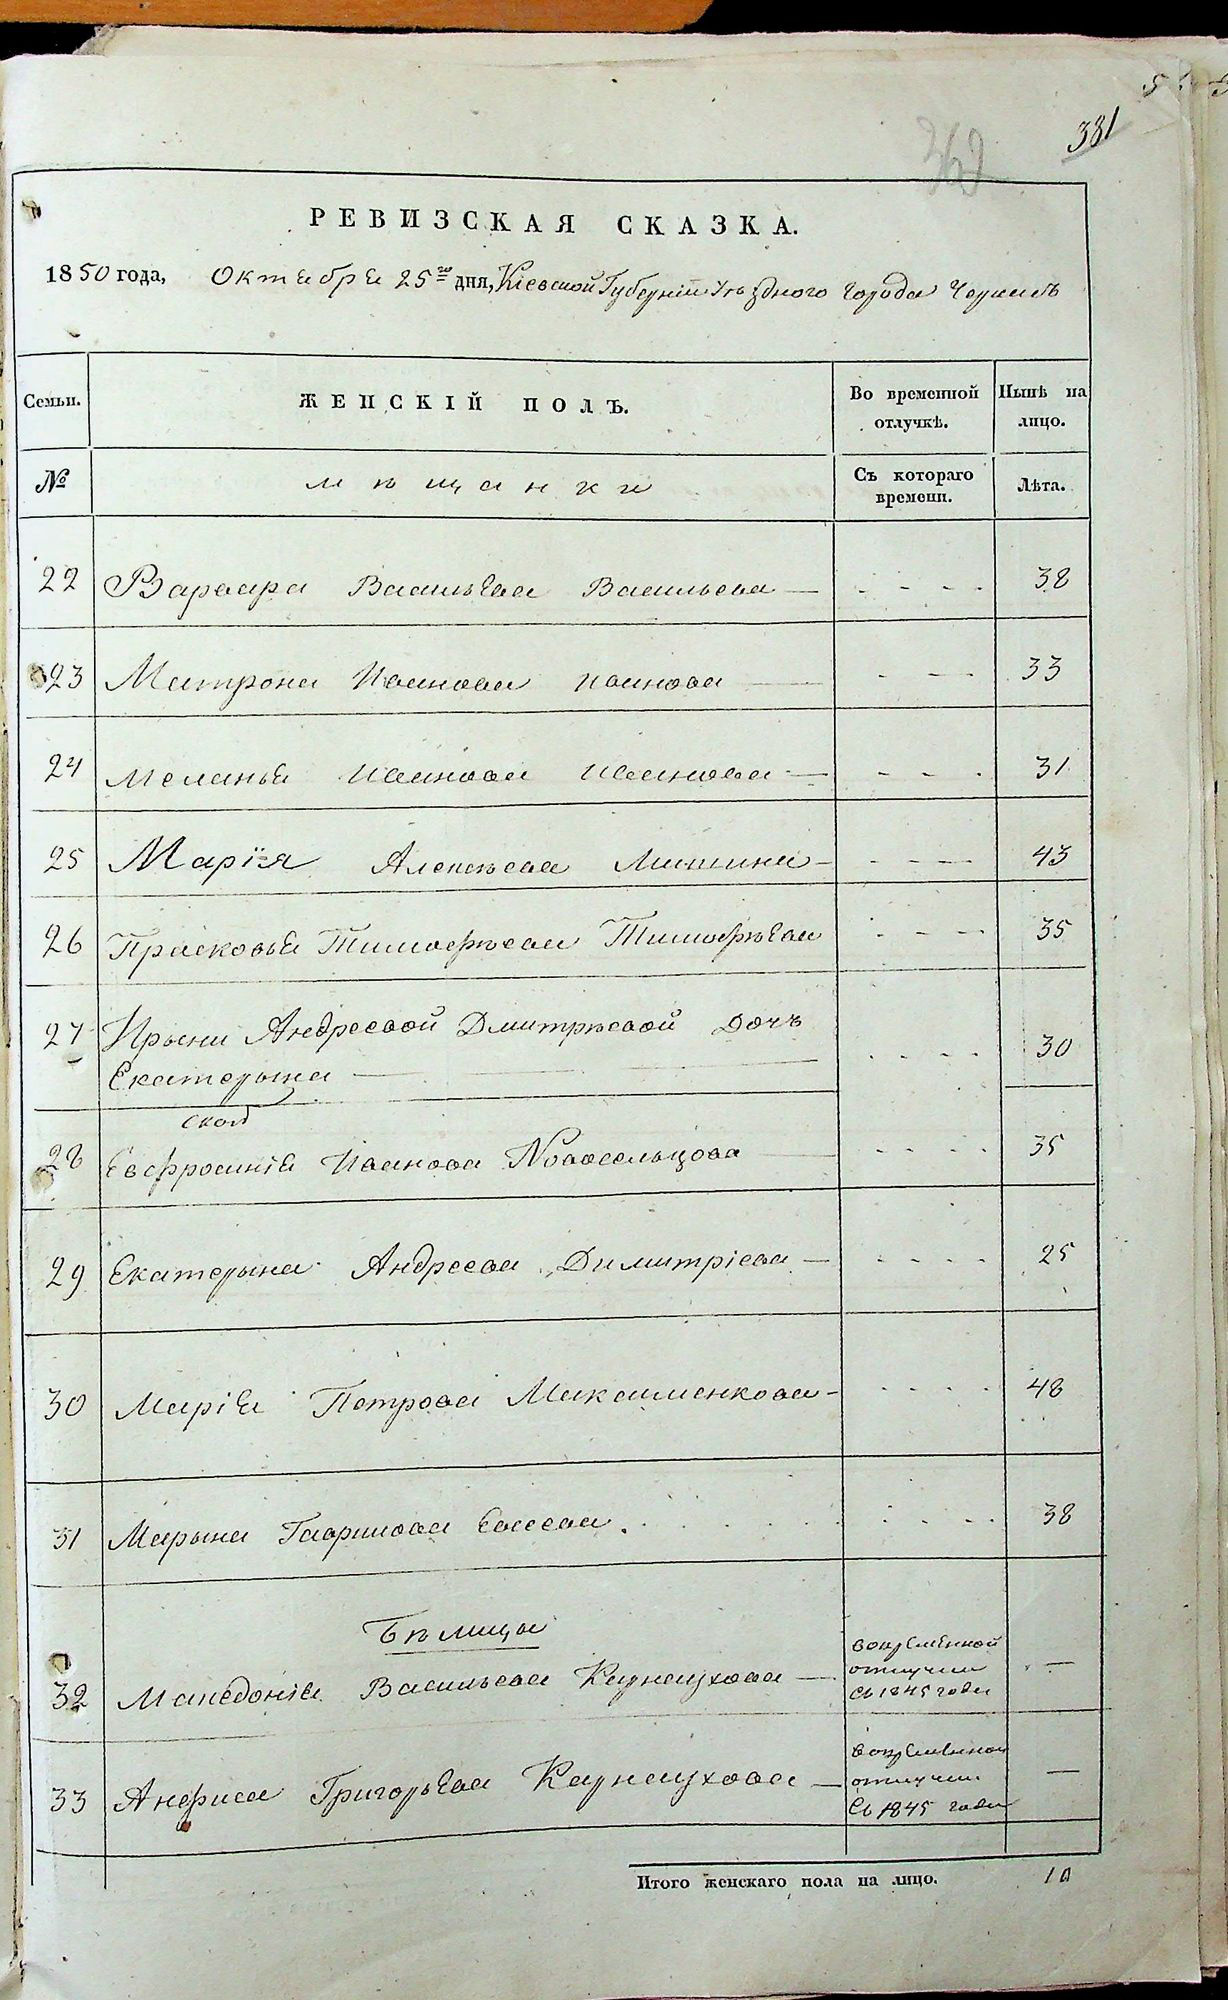 381
362
РЕВИЗСКАЯ СКАЗКА.
1850 года, Октября 25го дня, Кіевской Губерніи Уѣздного города Черкасъ
Семьи.
ЖЕНСКІЙ ПОЛЪ.
Во временной отлучкѣ.
Нынѣ на лицо.
№
мѣщанки
Съ котораго времени.
Лѣта.
22 Варвара Васильева Васильева 38
23 Матрона Иванова Иванова 33
24 Меланья Иванова Иванова 31
25 Марія Алексѣева Мишина 43
26 Прасковья Тимофѣева Тимофѣева 35
27 Ирыны Андреевой Дмитрѣевой дочъ
Екатерына 30
28 Евфросинія Иванова Новосельцова 35
29 Екатерына Андреева Димитріева 25
30 Марія Петрова Максименкова 48
31 Марына Гаврилова 38
Бѣлицы
32 Македонія Васильева Карнаухова — вовременной отлучки съ 1845 года —
33 Анфиса Григорьева Карнаухова — вовременной отлучки съ 1845 года —
Итого женскаго пола на лицо. 10